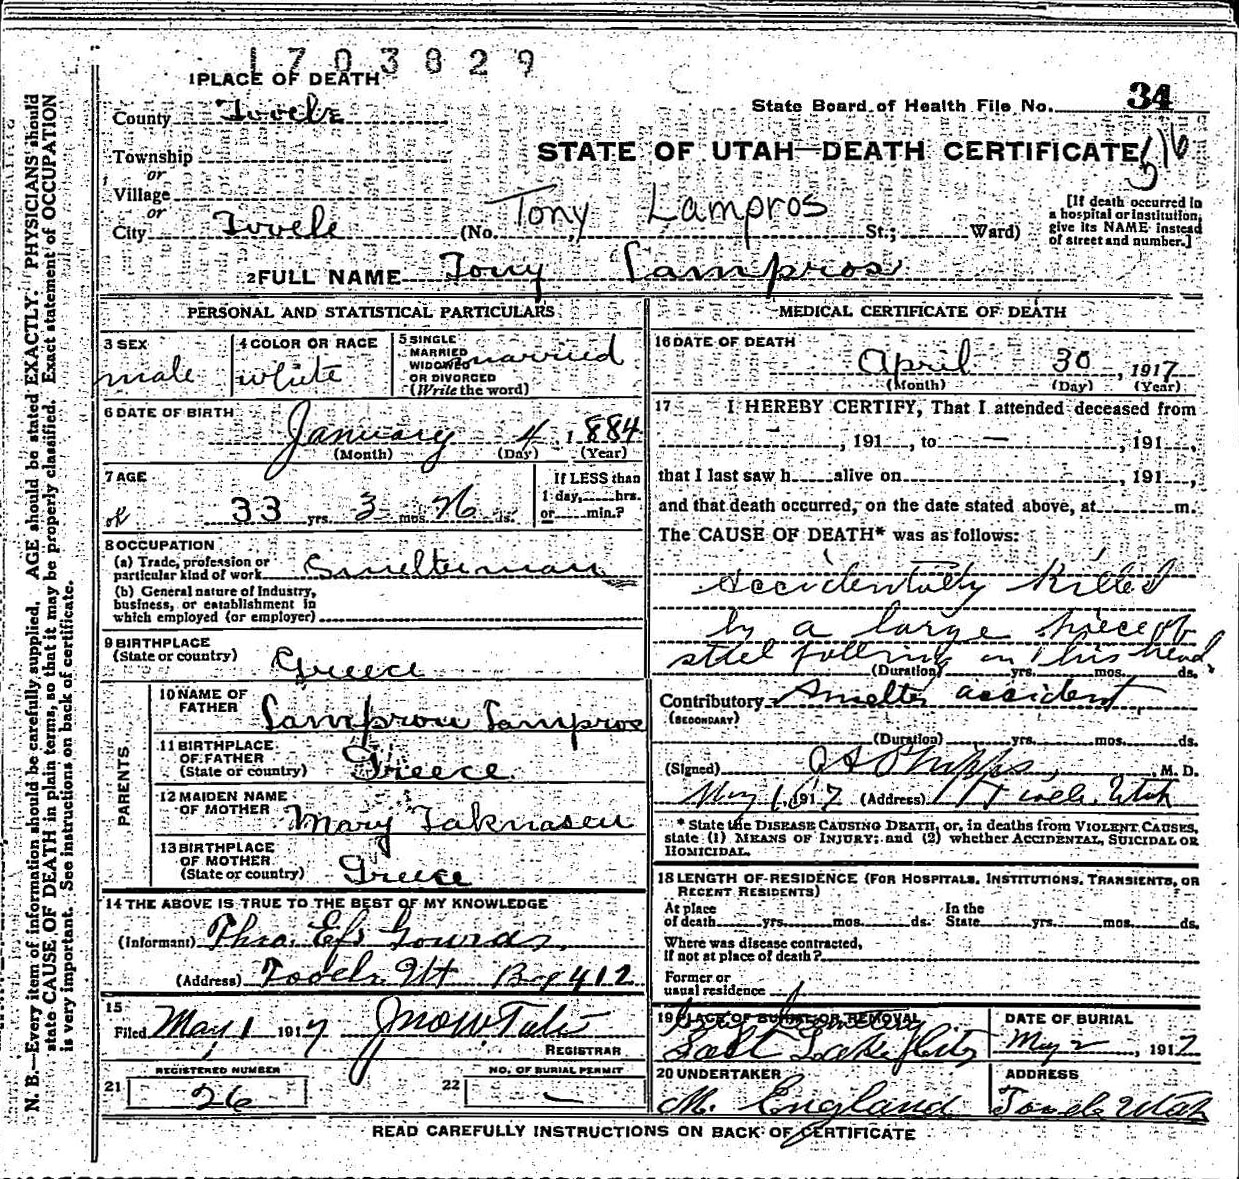 1703829
1 PLACE OF DEATH
County Tooele
State Board of Health File No. 34
Township
or
STATE OF UTAH—DEATH CERTIFICATE 516
Village
or
Tony Lampros
City Tooele (No. St.; Ward)
[If death occurred in
a hospital or institution,
give its NAME instead
of street and number.]
2 FULL NAME Tony Lampros
PERSONAL AND STATISTICAL PARTICULARS
3 SEX
male
4 COLOR OR RACE
white
5 SINGLE
MARRIED
WIDOWED
OR DIVORCED
(Write the word)
married
6 DATE OF BIRTH
January 4, 1884
(Month) (Day) (Year)
7 AGE
ok 33 yrs. 3 mos. 26 ds.
If LESS than
1 day, hrs.
or min.?
8 OCCUPATION
(a) Trade, profession or
particular kind of work Smelterman
(b) General nature of Industry,
business, or establishment in
which employed (or employer)
9 BIRTHPLACE
(State or country) Greece
PARENTS
10 NAME OF
FATHER Lamprou Lampros
11 BIRTHPLACE
OF FATHER
(State or country) Greece
12 MAIDEN NAME
OF MOTHER Mary
13 BIRTHPLACE
OF MOTHER
(State or country) Greece
14 THE ABOVE IS TRUE TO THE BEST OF MY KNOWLEDGE
(Informant)
(Address) Tooele Ut Box 412
15
Filed May 1 1917
REGISTRAR
REGISTERED NUMBER
21 26
NO. OF BURIAL PERMIT
22 —
MEDICAL CERTIFICATE OF DEATH
16 DATE OF DEATH
April 30, 1917
(Month) (Day) (Year)
17 I HEREBY CERTIFY, That I attended deceased from
, 191 , to — , 191 ,
that I last saw h alive on , 191 ,
and that death occurred, on the date stated above, at m.
The CAUSE OF DEATH* was as follows:
Accidentally Killed
by a large piece of
steel falling on his head.
(Duration) yrs. mos. ds.
Contributory Smelter accident
(SECONDARY)
(Duration) yrs. mos. ds.
(Signed) Phipps, M. D.
May 1, 1917 (Address) Tooele, Utah
* State the DISEASE CAUSING DEATH, or, in deaths from VIOLENT CAUSES,
state (1) MEANS OF INJURY: and (2) whether ACCIDENTAL, SUICIDAL OR
HOMICIDAL.
18 LENGTH OF RESIDENCE (FOR HOSPITALS, INSTITUTIONS, TRANSIENTS, OR
RECENT RESIDENTS)
At place
of death yrs. mos. ds.
In the
State yrs. mos. ds.
Where was disease contracted,
if not at place of death?
Former or
usual residence
19 PLACE OF BURIAL OR REMOVAL
City Cemetery
Salt Lake City
DATE OF BURIAL
May 2, 1917
20 UNDERTAKER
M. England
ADDRESS
Tooele Utah
READ CAREFULLY INSTRUCTIONS ON BACK OF CERTIFICATE
N. B.—Every item of information should be carefully supplied. AGE should be stated EXACTLY. PHYSICIANS should
state CAUSE OF DEATH in plain terms, so that it may be properly classified. Exact statement of OCCUPATION
is very important. See instructions on back of certificate.